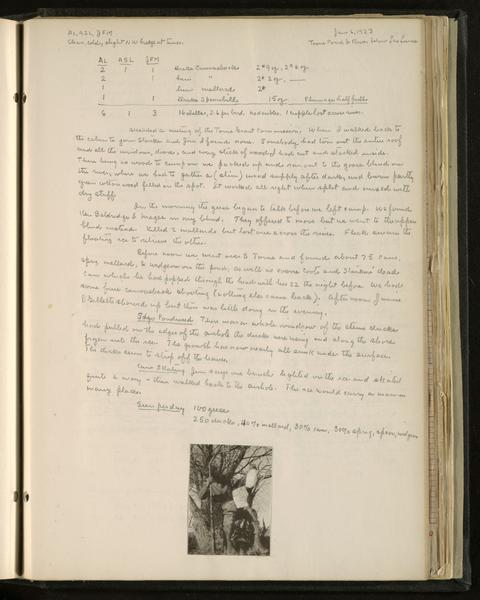 AL, ASL, JFM
Jan 6, 1923
Clear, cold, slight NW breeze at times.
Tome Pond & River below Los Lunas
AL ASL JFM
2 1 1 Drake Canvasbacks
2 1 hen "
1 hen mallard
1 1 drake
6 1 3 16 shells, 2.6 per bird. no doubles. 1 cripple lost across river.
Attended a meeting of the Tome Grant Commission. When I walked back to
the cabin to join Starker and Jim I found none. Somebody had torn out the entire roof
and all the windows, doors, and every stick of wood I had cut and stacked inside.
There being no wood to camp on we packed up and ran out to the goose blind on
the river, where we had to gather a (slim) wood supply after dark, and burn partly
green cottonwood felled on the spot. It worked all right when split and mixed with
dry stuff.
In the morning the geese began to talk before we left camp. We found
Ken Baldridge & Mager in my blind. They offered to move but we went to the upper
blind instead. Killed 2 mallards but lost one across the river. Flick swam the
floating ice to retrieve the other.
Before noon we went over to Tome and found about 75 cans,
sprig, mallard, & widgeon on the pond, as well as some coots and Starker's dead
can which he had popped through the head with his 22 the night before. We had
some fine canvasback shooting (nothing else came back). After noon J
Gillette showed up but there was little doing in the evening.
Sago Pondweed There was a whole windrow of the stems ducks
had pulled on the edges of the airhole the ducks were using and along the shore
frozen into the ice. The growth has now nearly all sunk under the surface.
The ducks seem to strip off the leaves.
Cans Skating Jim says one bunch lighted on the ice and skated
quite a way - then walked back to the airhole. The ice would carry a man in
many places.
Seen per day 100 geese
250 ducks, 40% mallard, 30% cans, 30% sprig, spoon, widgeon